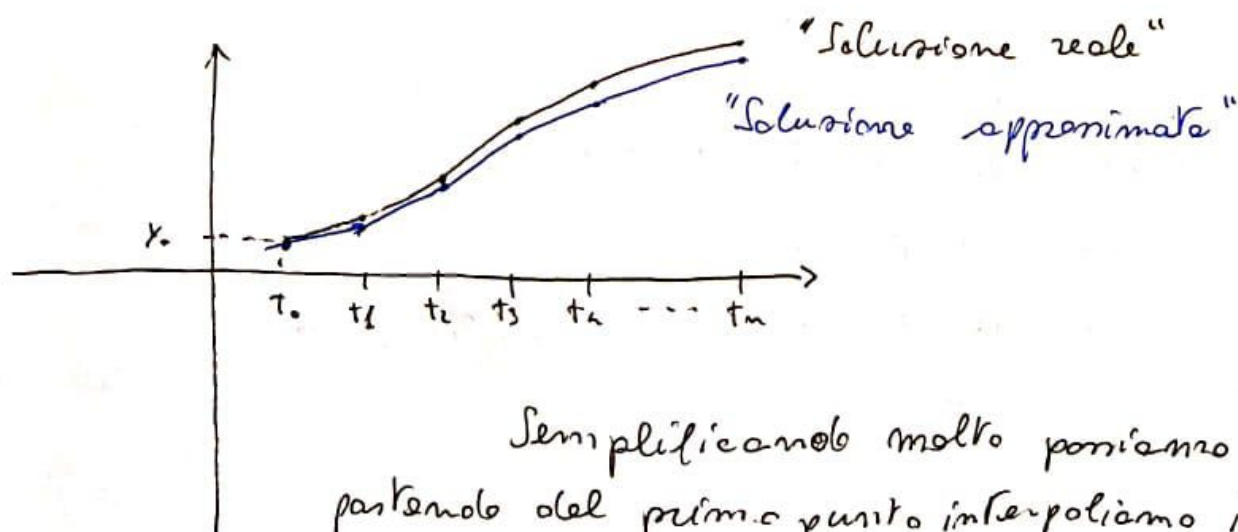 "Soluzione reale"
"Soluzione approssimata"
y₀
t₀ t₁ t₂ t₃ t₄ ---- tₙ
Semplificando molto possiamo
partendo dal primo punto interpoliamo